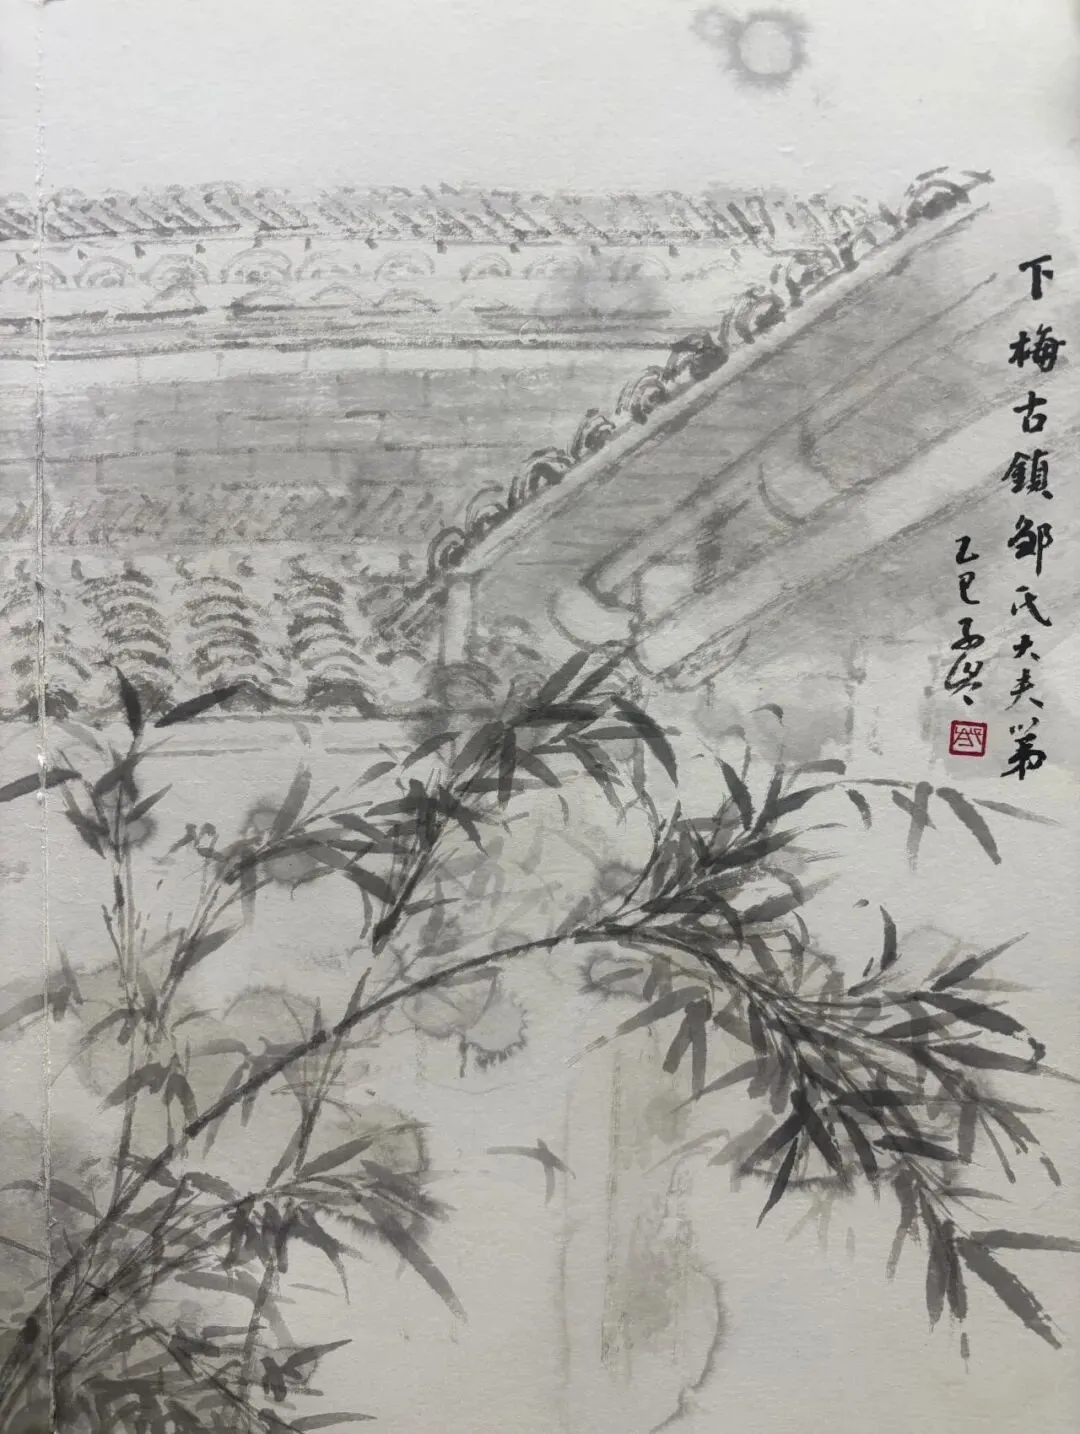 下梅古鎮邹氏大夫第
乙巳子